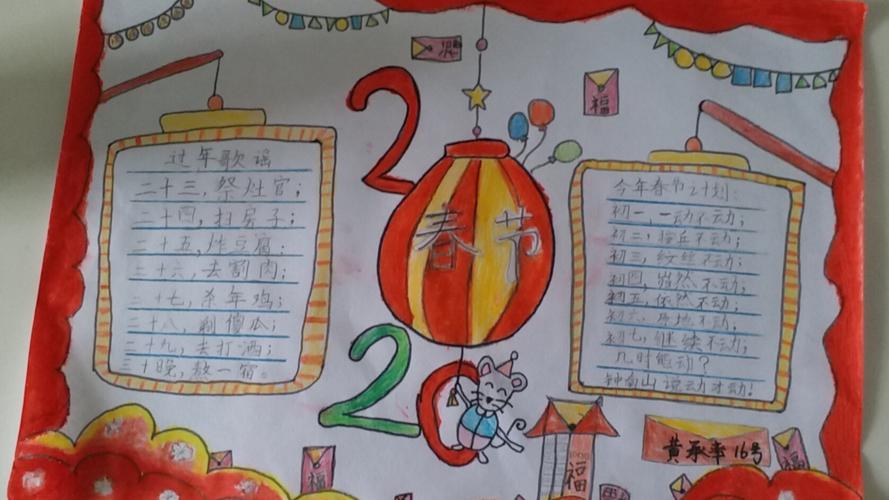 过年歌谣
二十三，祭灶官；
二十四，扫房子；
二十五，炸豆腐；
二十六，去割肉；
二十七，杀年鸡；
二十八，剐傻瓜；
二十九，去打酒；
三十晚，熬一宿。
2020
春节
福
今年春节计划：
初一，一动不动；
初二，按兵不动；
初三，纹丝不动；
初四，岿然不动；
初五，依然不动；
初六，原地不动；
初七，继续不动；
几时能动？
钟南山说动才动！
福
福
黄承率 16号